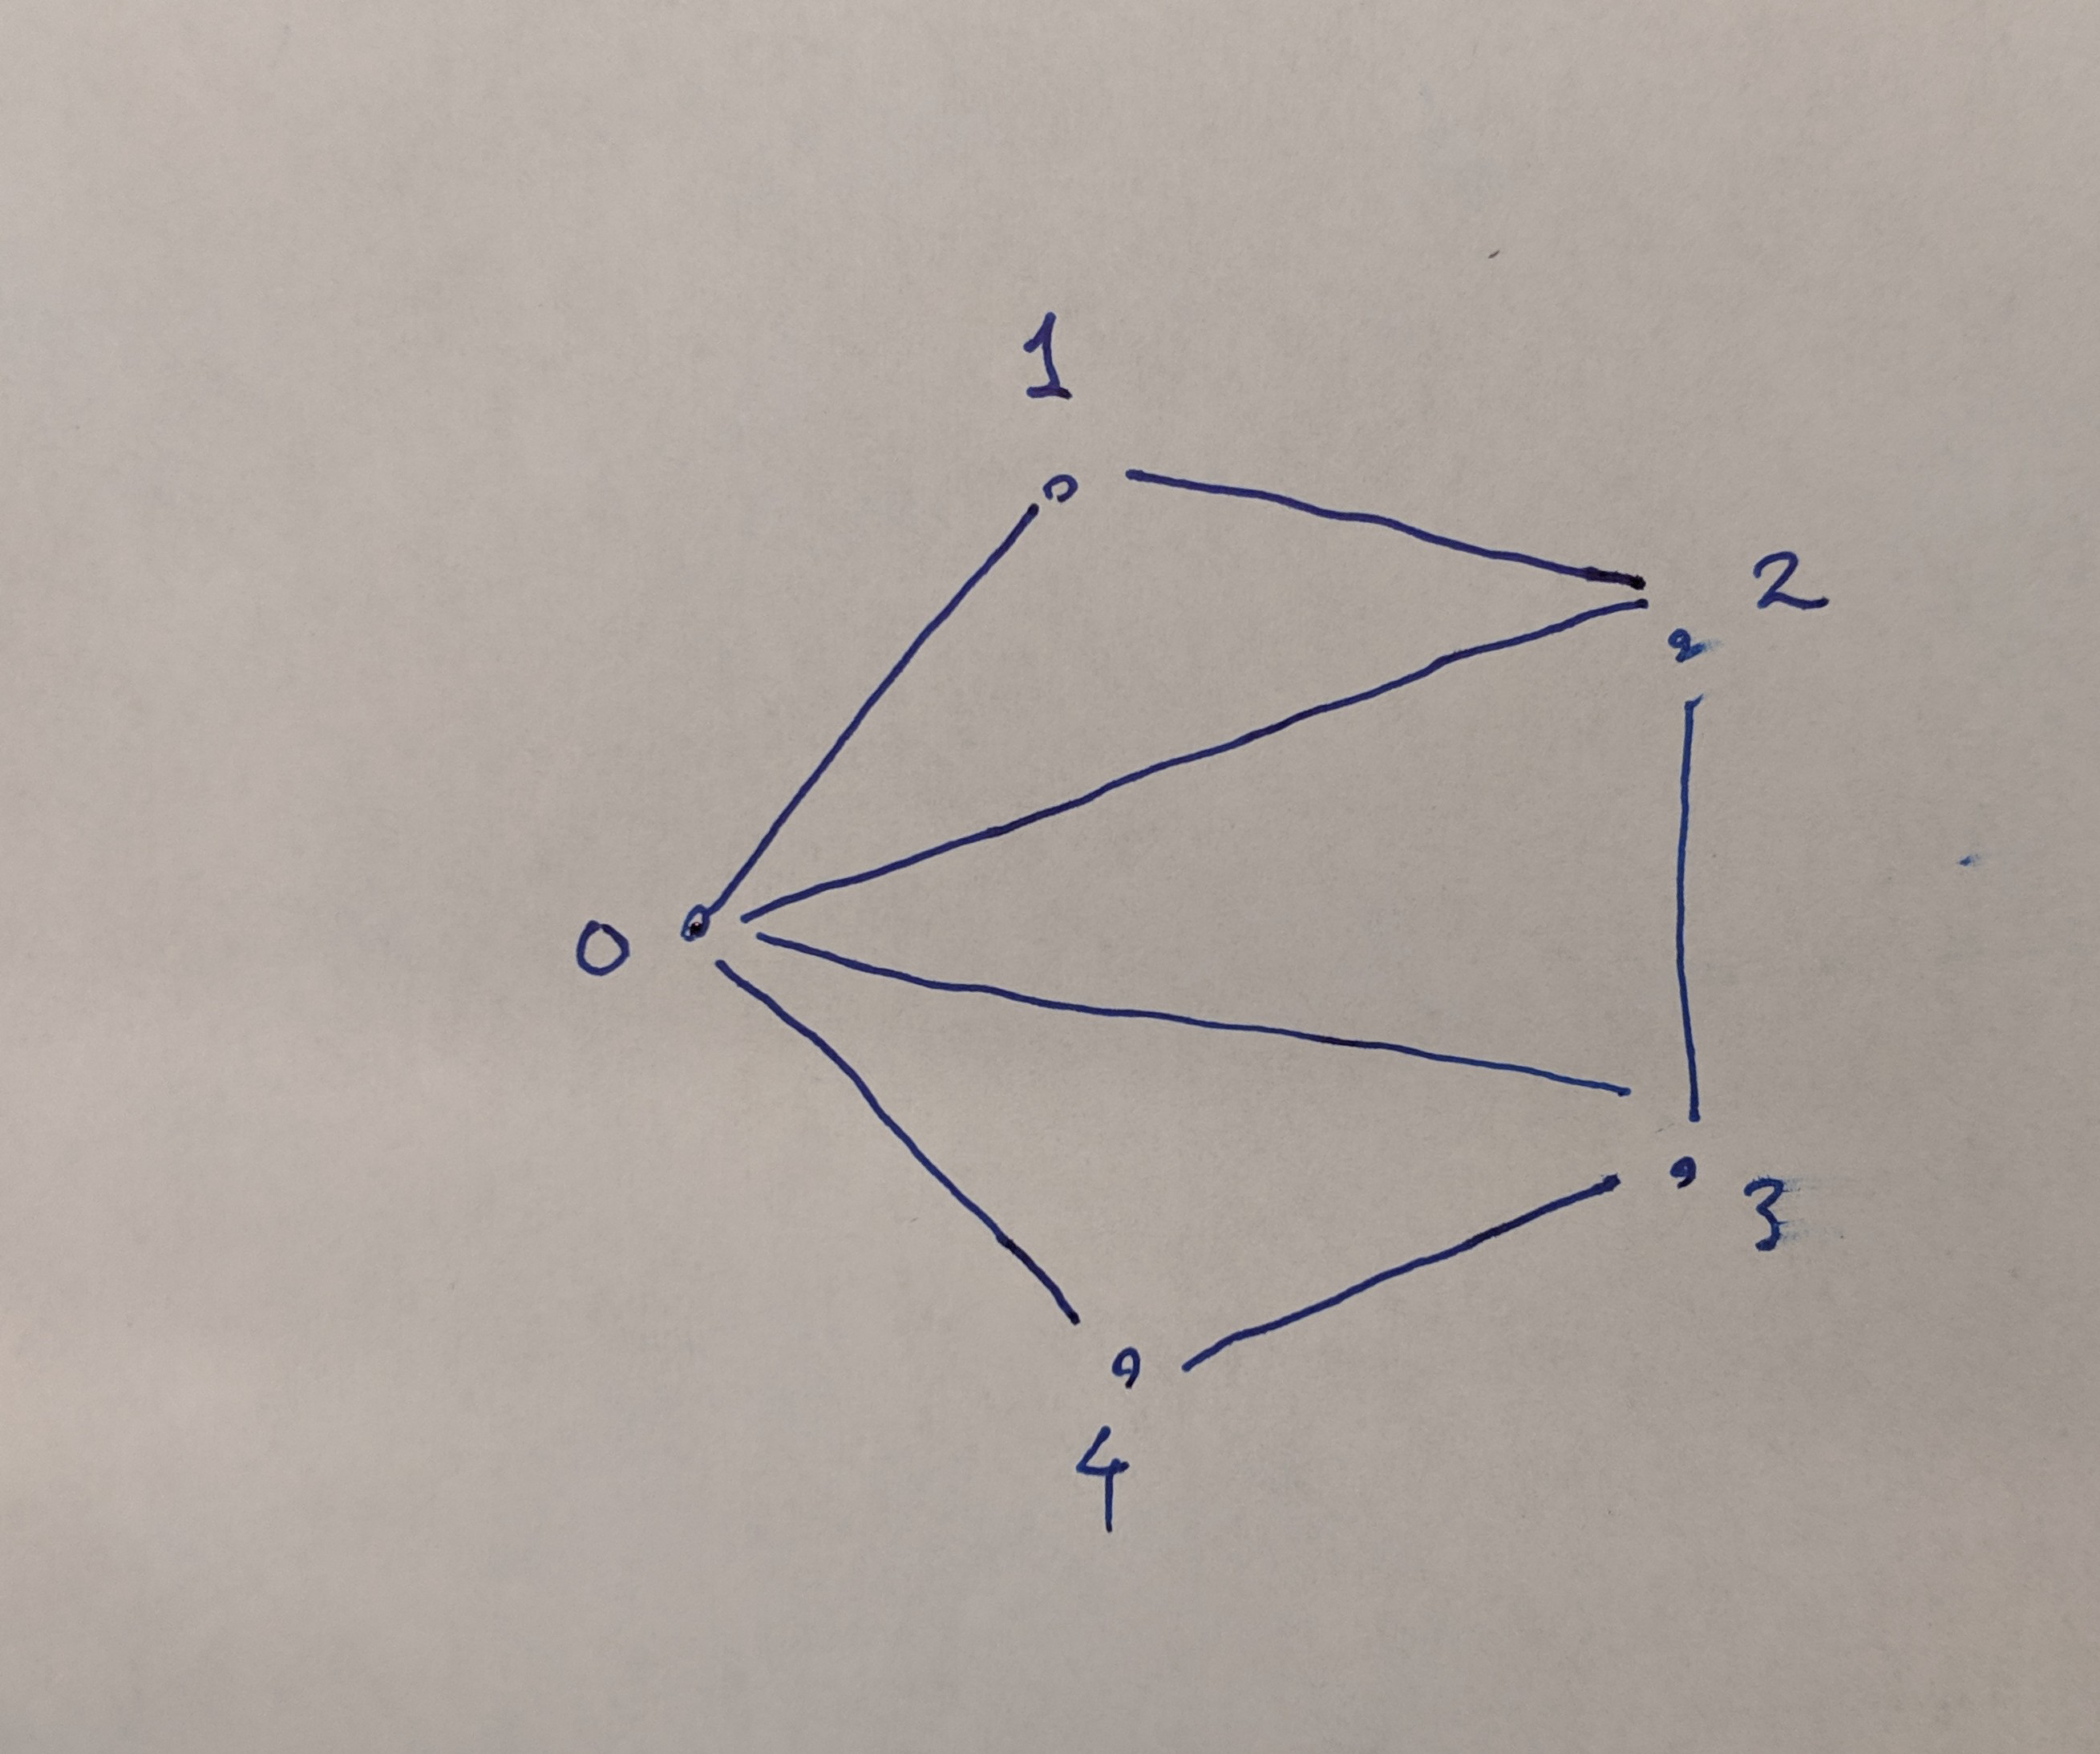 1
2
0
3
4